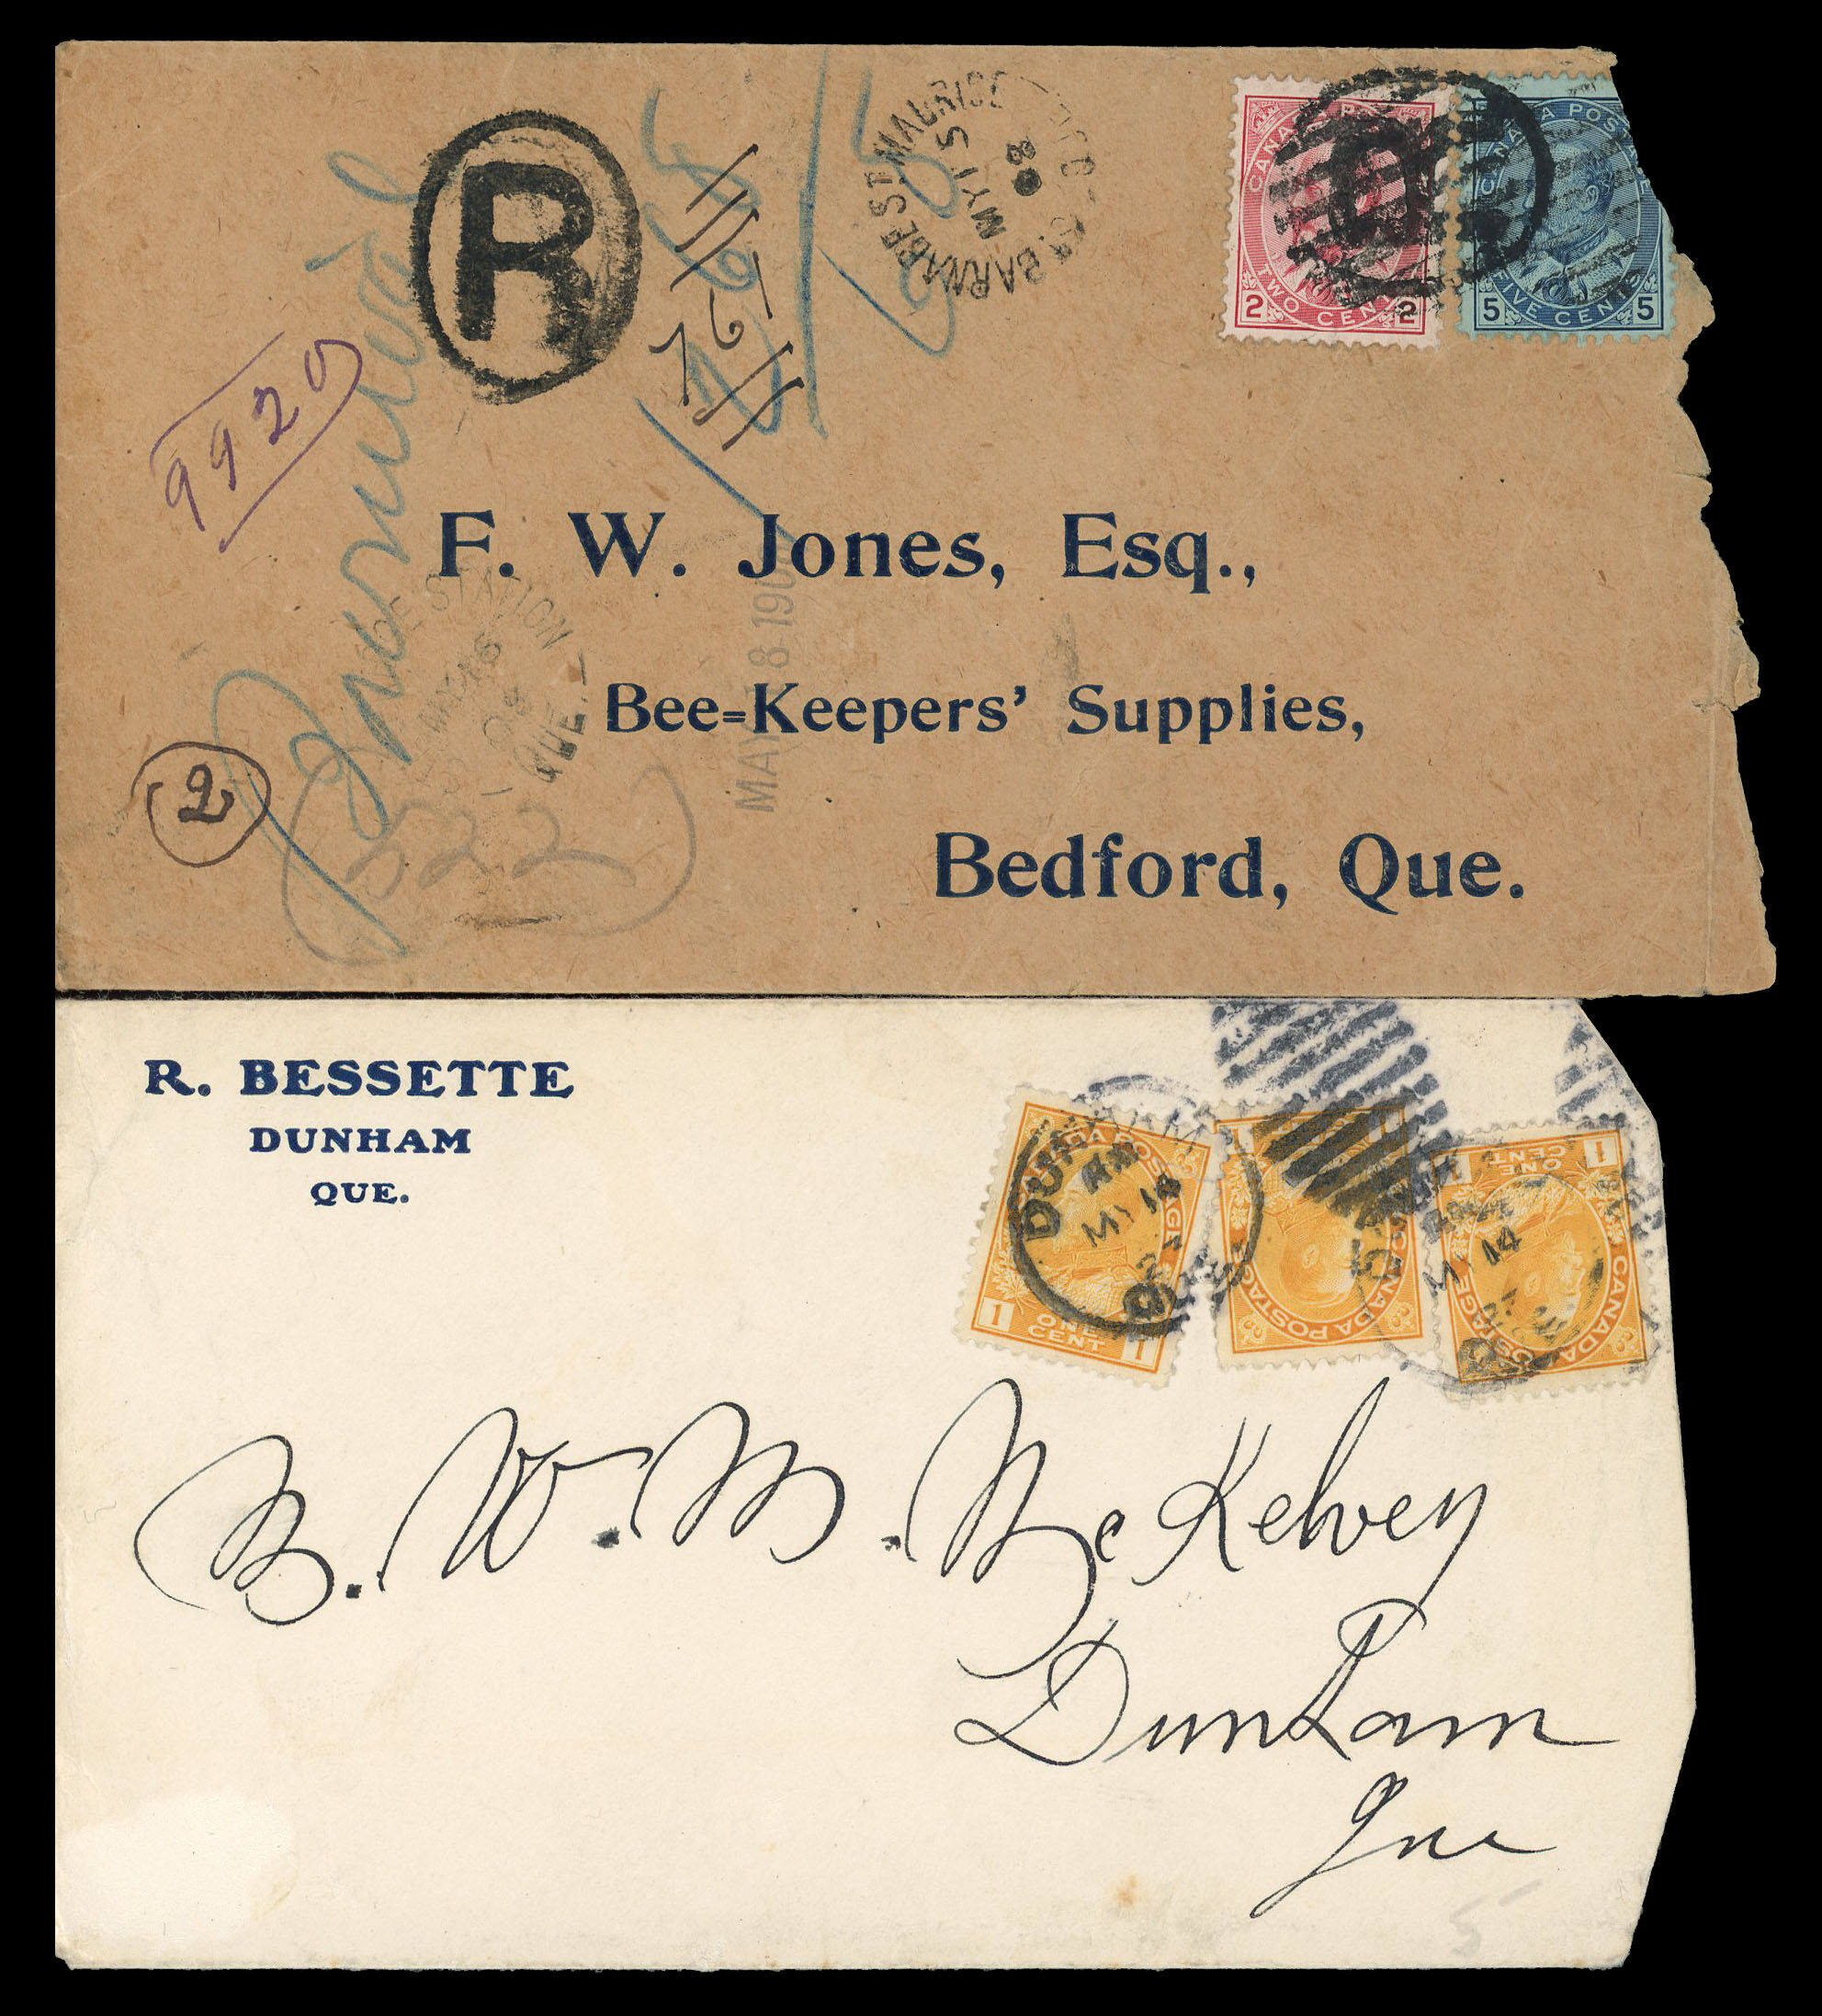 R
ST BARNABE ST. MAURICE
MY 15
08
CANADA POSTAGE
TWO CENTS
2 2
CANADA POSTAGE
FIVE CENTS
5 5
9920
F. W. Jones, Esq.,
Bee=Keepers' Supplies,
Bedford, Que.
STATION
QUE.
MAY 18 190
2
522
R. BESSETTE
DUNHAM
QUE.
DUNHAM
AM
MY 14
CANADA POSTAGE
1 ONE CENT 1
CANADA POSTAGE
MY 14
CANADA POSTAGE
1 ONE CENT 1
B. W. M. McKelvey
Dunham
Que
5